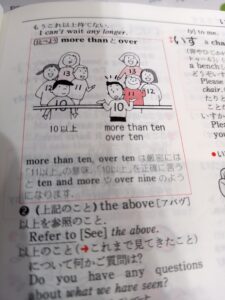 もうこれ以上待てない.
I can't wait any longer.
くらべよう more than と over
13 11 12
10
10以上
12 13 11
10
more than ten
over ten
more than ten, over ten は厳密には
「11以上」の意味.「10以上」を正確に言う
と ten and more や over nine のよう
になります.
❷ (上記のこと) the above [アバヴ]
以上を参照のこと.
Refer to [See] the above.
以上のこと (➔これまで見てきたこと)
について何かご質問は?
Do you have any questions
about what we have seen?
(y) to me.
いす
a cha
a bench
どうぞいす
Please
chair.
Please